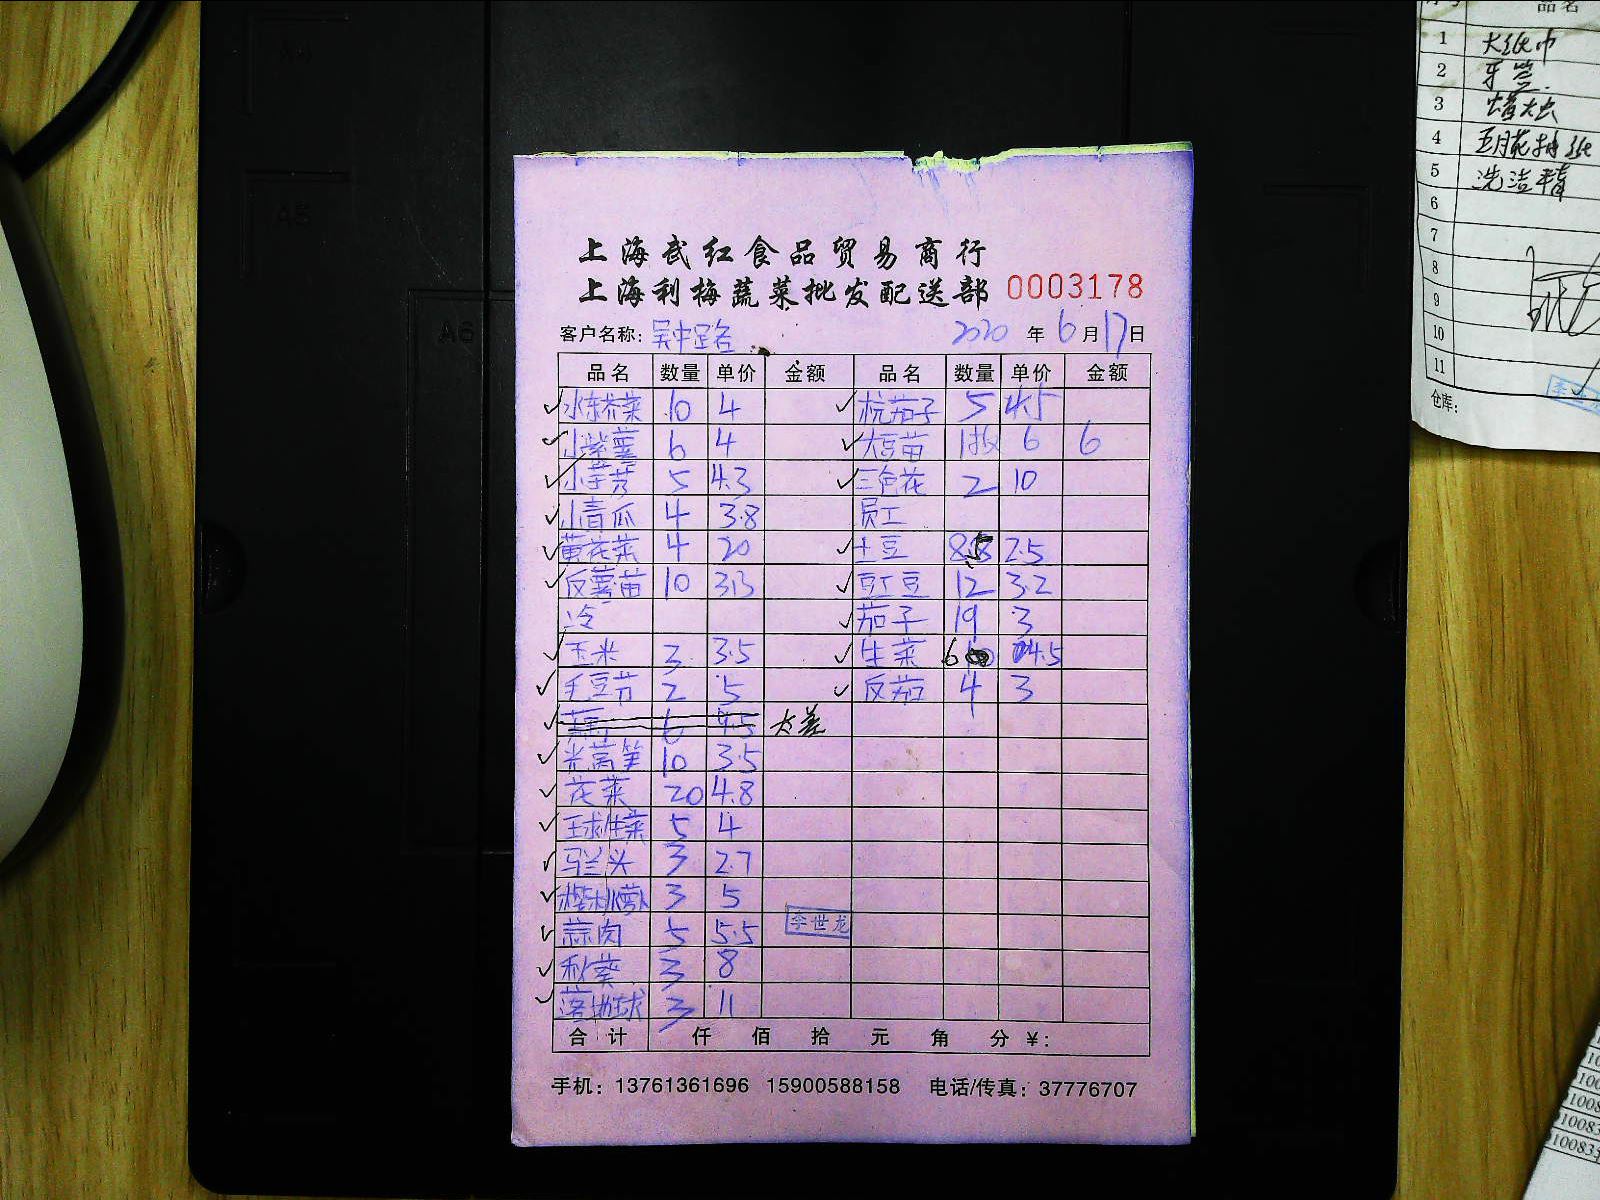 上海武红食品贸易商行
上海利梅蔬菜批发配送部 0003178
客户名称: 吴中路 2020 年 6 月 17 日
品名 数量 单价 金额 品名 数量 单价 金额
水东芥菜 10 4 杭茄子 5 4.5
小紫薯 6 4 大豆苗 1板 6 6
小芋艿 5 4.3 三色花 2 10
小青瓜 4 3.8 员工
黄花菜 4 20 土豆 2.5
反薯苗 10 3.3 豇豆 12 3.2
冷 茄子 19 3
玉米 3 3.5 生菜 6 4.5
毛豆节 2 5 反茄 4 3
6 4.5 太差
光莴笋 10 3.5
花菜 20 4.8
玉球生菜 5 4
马兰头 3 2.7
樱桃萝卜 3 5
蒜肉 5 5.5 李世龙
秋葵 3 8
落地球 3 11
合计 仟 佰 拾 元 角 分 ¥:
手机: 13761361696 15900588158 电话/传真: 37776707
品名
1 大纸巾
2 牙签
3
4 五月花抽纸
5 洗洁精
6
7
8
9
10
11
仓库:
A5
A6